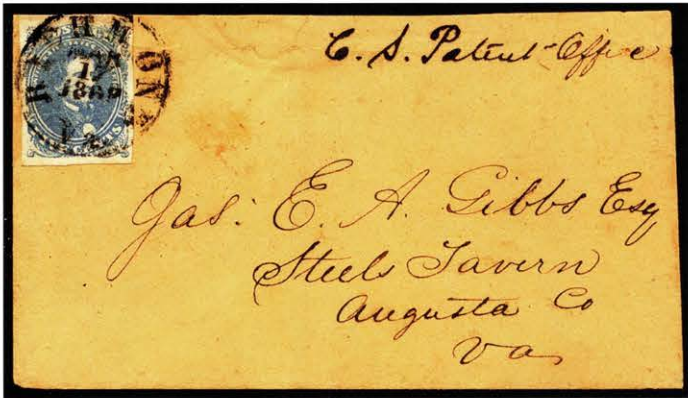 RICHMOND
17
186
Va.
C. S. Patent Office
Jas: E. A. Gibbs Esq
Steels Tavern
Augusta Co
Va